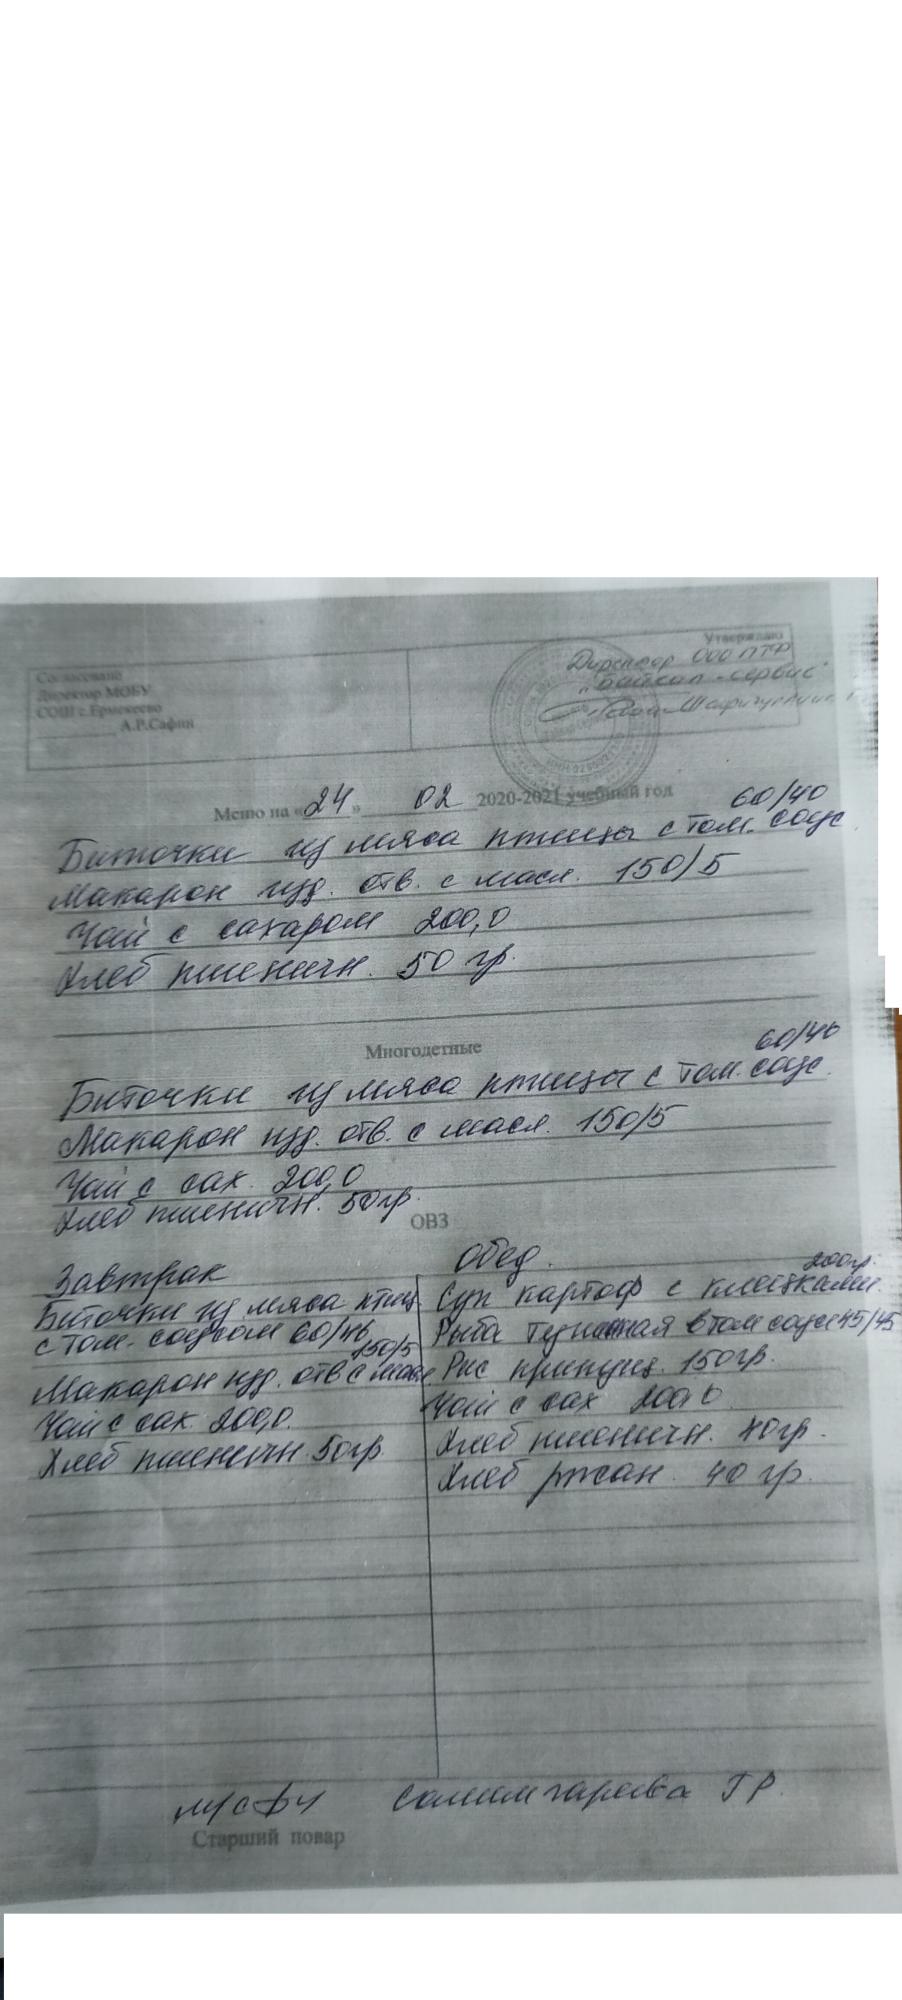 Согласовано
Директор МОБУ
СОШ с.Ермекеево
А.Р.Сафин
Утверждаю
Директор ООО ПТФ
Меню на «24» 02 2020-2021 учебный год
60/40
Биточки из мяса птицы с том. соус
Макарон изд. отв. с масл. 150/5
Чай с сахаром 200,0
Хлеб пшеничн. 50 гр.
Многодетные
60/40
Биточки из мяса птицы с том. соус.
Макарон изд. отв. с масл. 150/5
Чай с сах. 200,0
Хлеб пшеничн. 50гр.
ОВЗ
Завтрак
Биточки из мяса птиц.
с том. соусом 60/40
150/5
Макарон изд. отв с масл
Чай с сах. 200,0.
Хлеб пшеничн. 50гр.
Обед.
200гр.
Суп картоф с клецками
Рыба тушеная в том соусе 45/45
Рис припущ. 150гр.
Чай с сах 200,0
Хлеб пшеничн. 40гр.
Хлеб ржан. 40 гр.
Салимгареева Г Р.
Старший повар